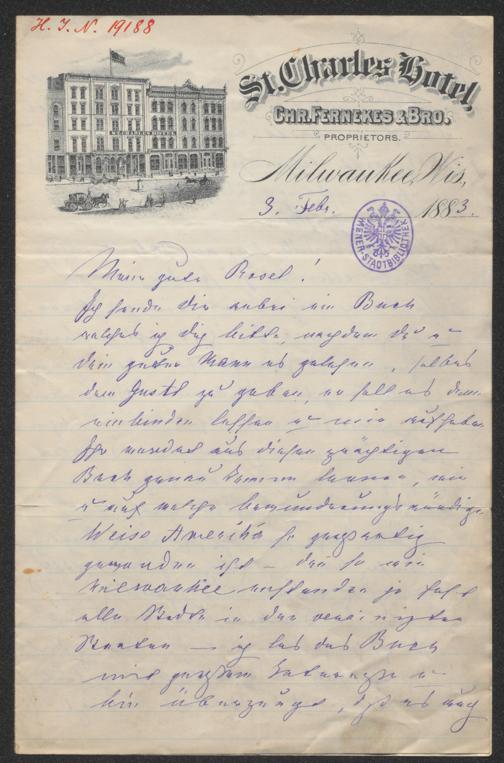 H. I. N. 19188
St. Charles Hotel,
CHR. FERNEKES & BRO.
PROPRIETORS.
ST. CHARLES HOTEL
Milwaukee, Wis,
3. Febr. 1883.
WIENER STADTBIBLIOTHEK
Meine gute Rosel!
Ich sende dir anbei ein Buch
welches ich dich bitte, nachdem du u
dein guter Mann es gelesen, selbes
dem Gustl zu geben, er soll es dann
einbinden lassen u mir aufheben
Ihr werdet aus diesem prächtigen
Buch genau kennen lernen, wie
u auf welche bewunderungswürdige
Weise Amerika so großartig
geworden ist – denn so wie
Milwaukee entstanden ja fast
alle Städte in den vereinigten
Staaten – ich las das Buch
mit großem Interesse u
bin überzeugt, daß es auch